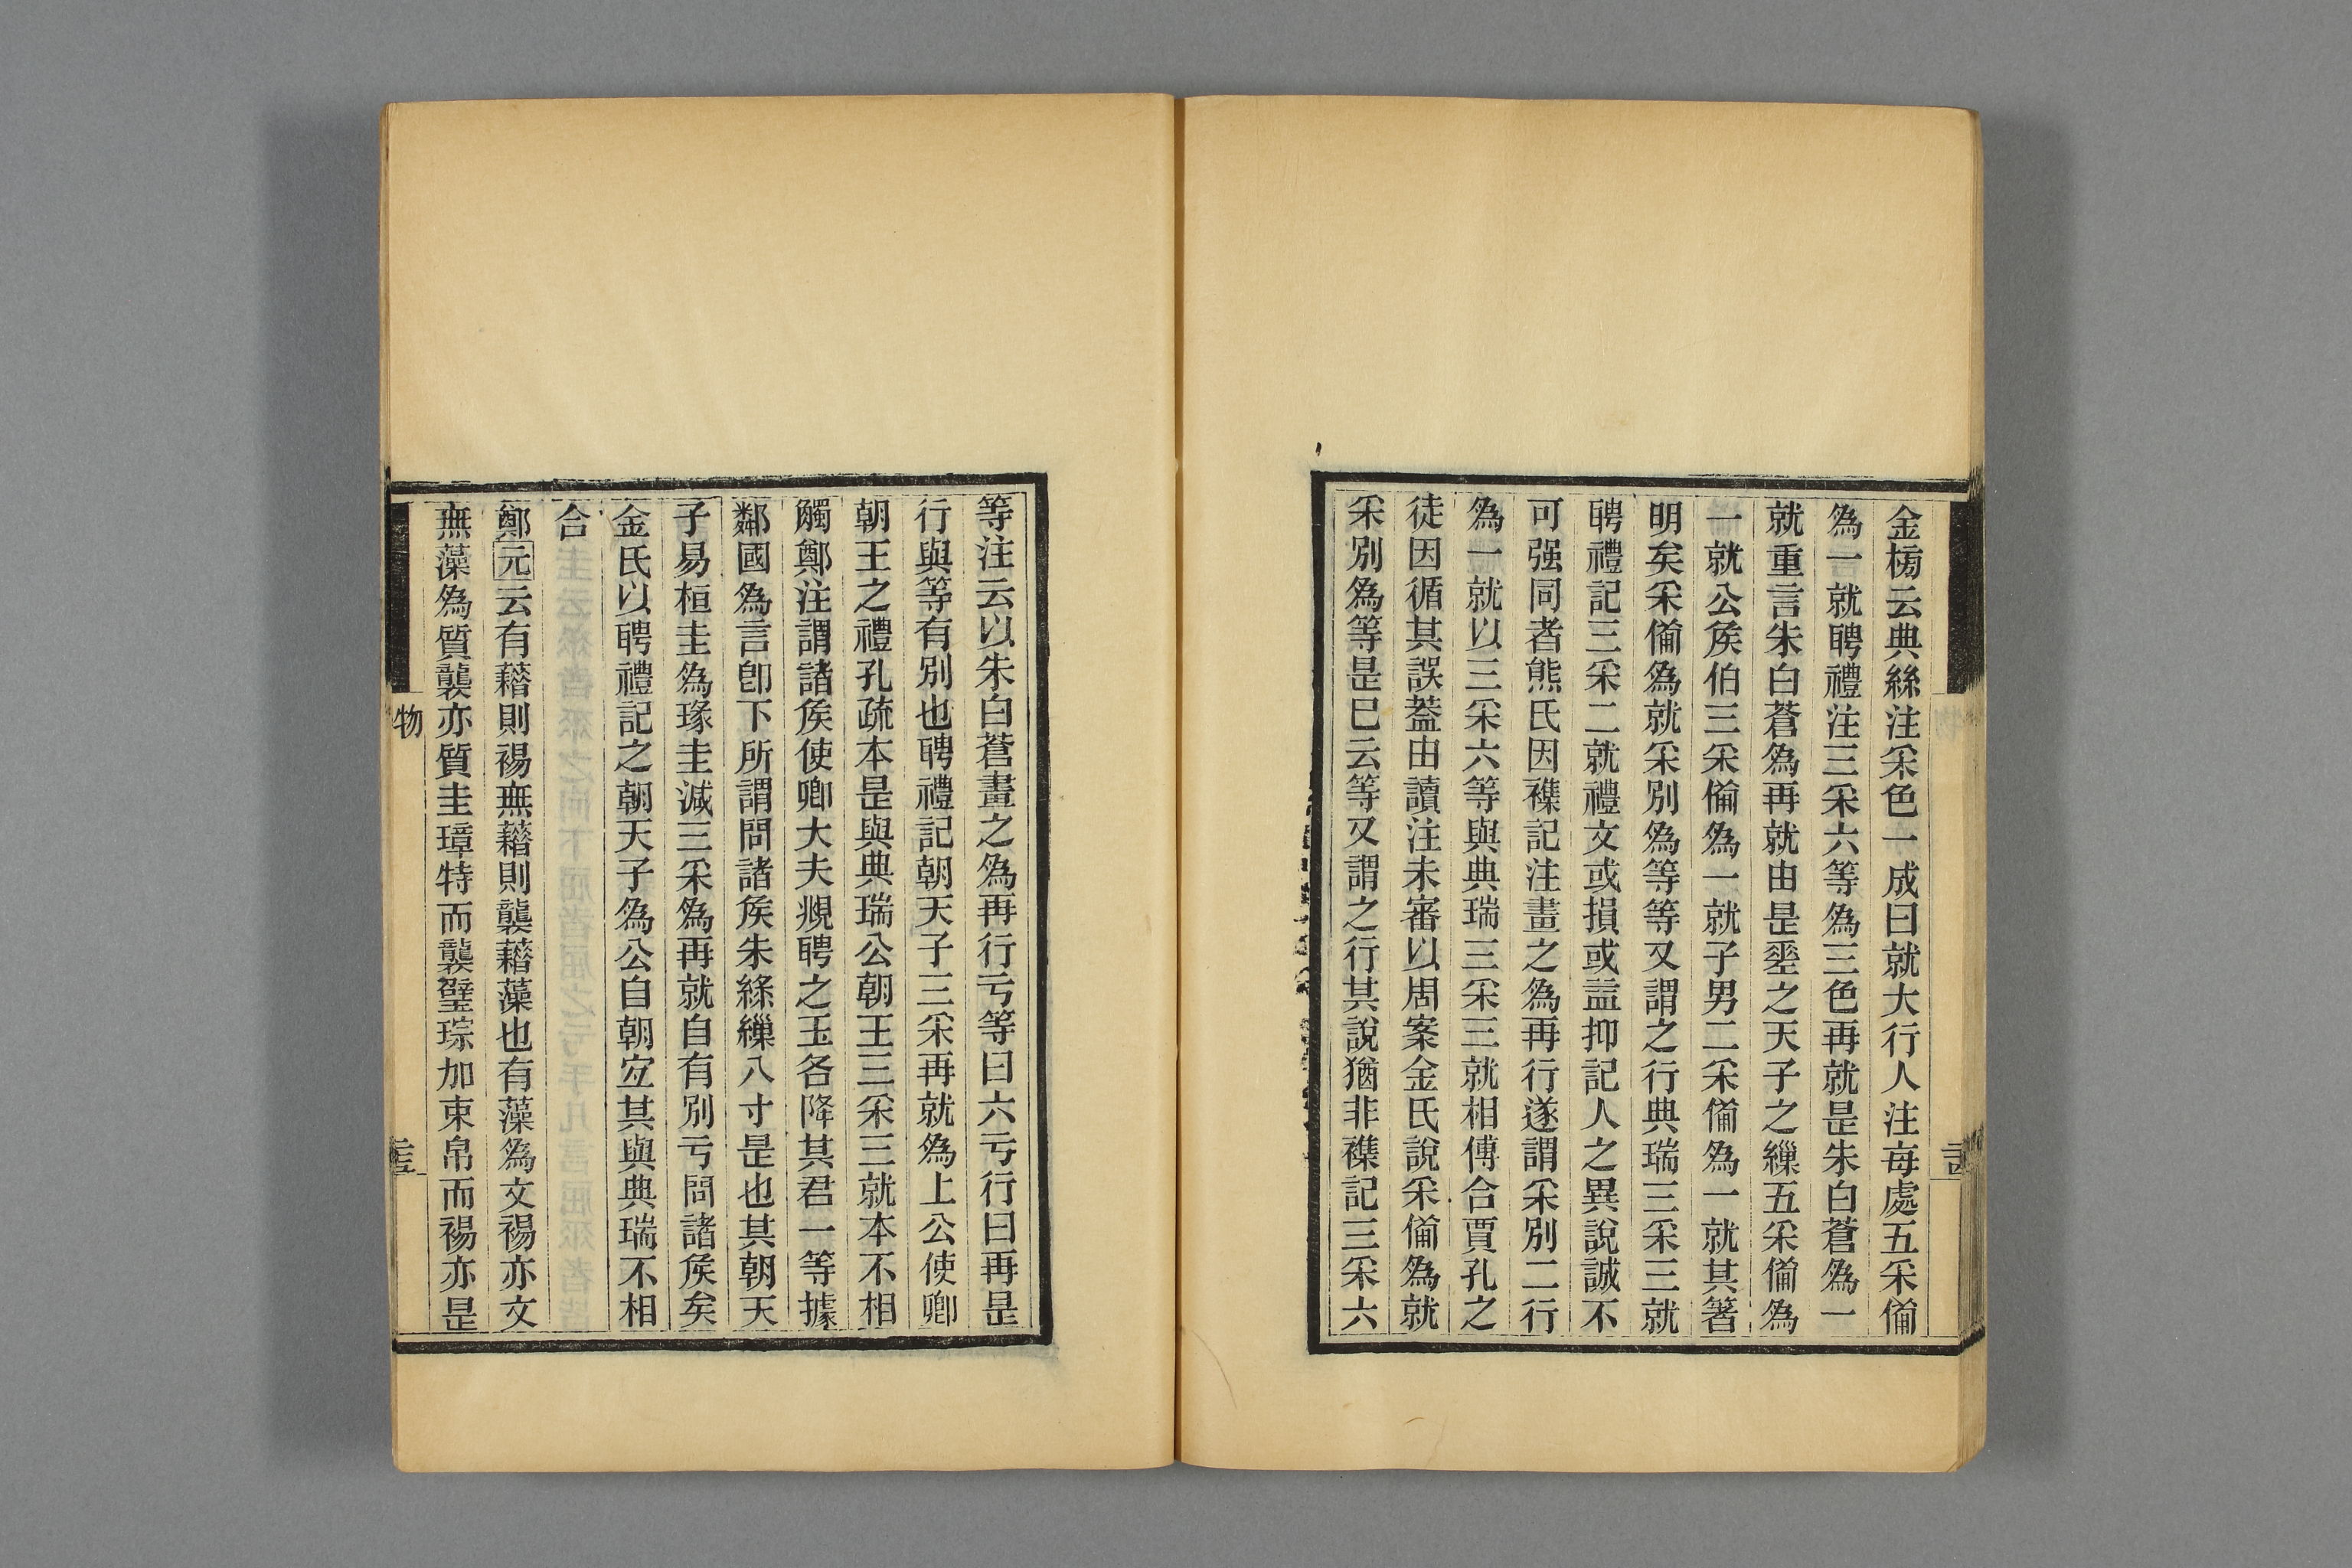 金榜云典絲注采色一成曰就大行人注每處五采僃
爲一就聘禮注三采六等爲三色再就是朱白蒼爲一
就重言朱白蒼爲再就由是坒之天子之繅五采僃爲
一就公矦伯三采僃爲一就子男二采僃爲一就其箸
明矣采僃爲就采別爲等等又謂之行典瑞三采三就
聘禮記三采二就禮文或損或益抑記人之異說誠不
可强同者熊氏因襍記注畫之爲再行遂謂采別二行
爲一就以三采六等與典瑞三采三就相傅合賈孔之
徒因循其誤葢由讀注未審以周案金氏說采僃爲就
采別爲等是巳云等又謂之行其說猶非襍記三采六
等注云以朱白蒼畫之爲再行亏等曰六亏行曰再是
行與等有別也聘禮記朝天子三采再就爲上公使卿
朝王之禮孔疏本是與典瑞公朝王三采三就本不相
觸鄭注謂諸矦使卿大夫覜聘之玉各降其君一等據
鄰國爲言卽下所謂問諸矦朱綠繅八寸是也其朝天
子易桓圭爲瑑圭減三采爲再就自有別亏問諸矦矣
金氏以聘禮記之朝天子爲公自朝宐其與典瑞不相
合
鄭元云有藉則裼無藉則襲藉藻也有藻爲文裼亦文
無藻爲質襲亦質圭璋特而襲璧琮加束帛而裼亦是
物